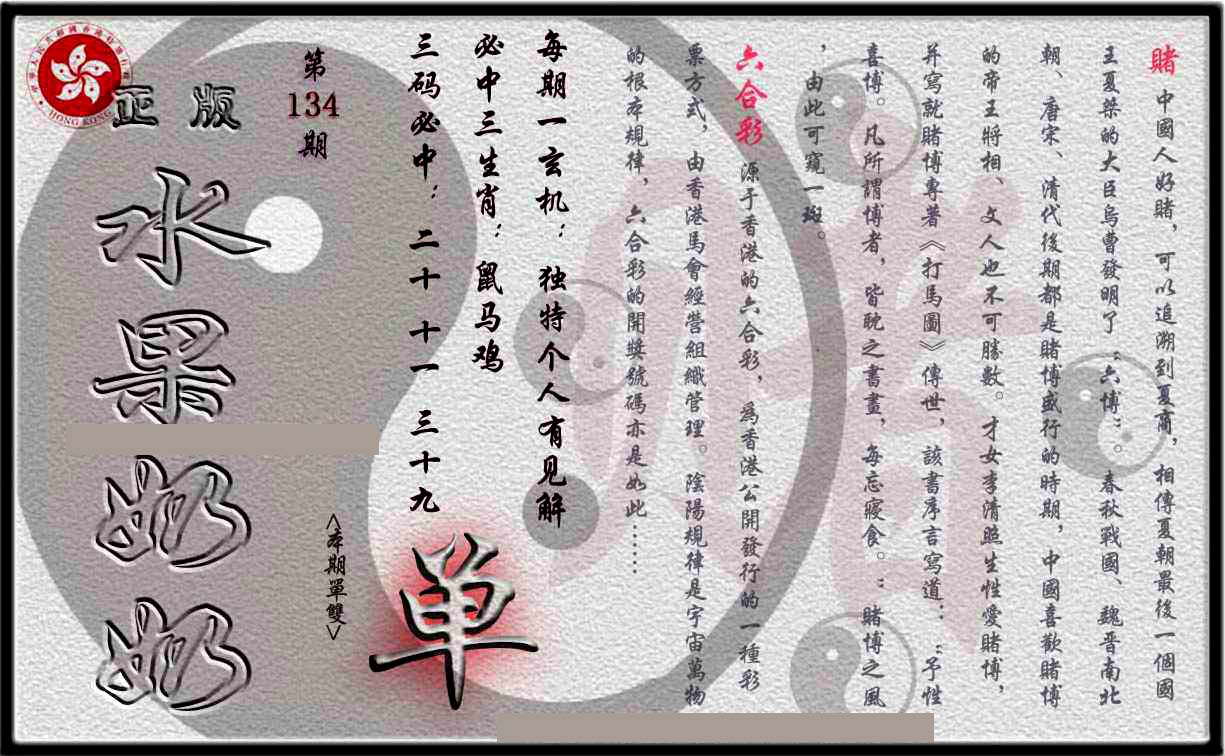 賭 中國人好賭，可以追溯到夏商，相傳夏朝最後一個國
王夏桀的大臣烏曹發明了“六博”。春秋戰國、魏晋南北
朝、唐宋、清代後期都是賭博盛行的時期，中國喜歡賭博
的帝王將相、文人也不可勝數。才女李清照生性愛賭博，
并寫就賭博專著《打馬圖》傳世，該書序言寫道：“予性
喜博。凡所謂博者，皆耽之書畫，每忘寢食。”賭博之風
，由此可窺一斑。
六合彩 源于香港的六合彩，爲香港公開發行的一種彩
票方式，由香港馬會經營組織管理。陰陽規律是宇宙萬物
的根本規律，六合彩的開獎號碼亦是如此……
每期一玄机：独特个人有见解
必中三生肖：鼠马鸡
三码必中：二十 十一 三十九
第134期
<本期單雙>
单
正版
水果奶奶
HONG KONG